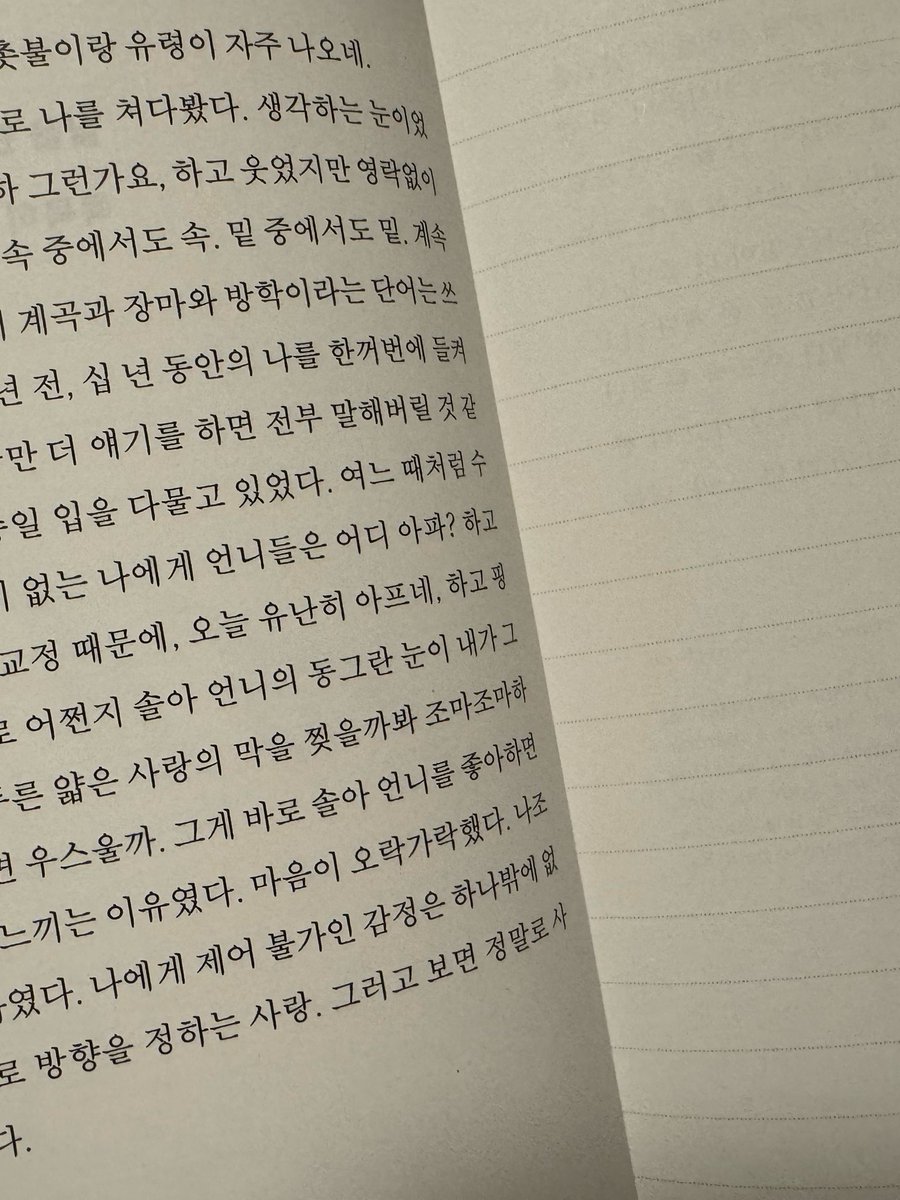 촛불이랑 유령이 자주 나오네.
로 나를 쳐다봤다. 생각하는 눈이었
하 그런가요, 하고 웃었지만 영락없이
속 중에서도 속. 밑 중에서도 밑. 계속
계곡과 장마와 방학이라는 단어는 쓰
년 전, 십 년 동안의 나를 한꺼번에 들켜
만 더 얘기를 하면 전부 말해버릴 것 같
일 입을 다물고 있었다. 여느 때처럼 수
없는 나에게 언니들은 어디 아파? 하고
교정 때문에, 오늘 유난히 아프네, 하고 핑
로 어쩐지 솔아 언니의 동그란 눈이 내가 그
른 얇은 사랑의 막을 찢을까봐 조마조마하
면 우스울까. 그게 바로 솔아 언니를 좋아하면
느끼는 이유였다. 마음이 오락가락했다. 나조
였다. 나에게 제어 불가인 감정은 하나밖에 없
로 방향을 정하는 사랑. 그러고 보면 정말로 사
다.